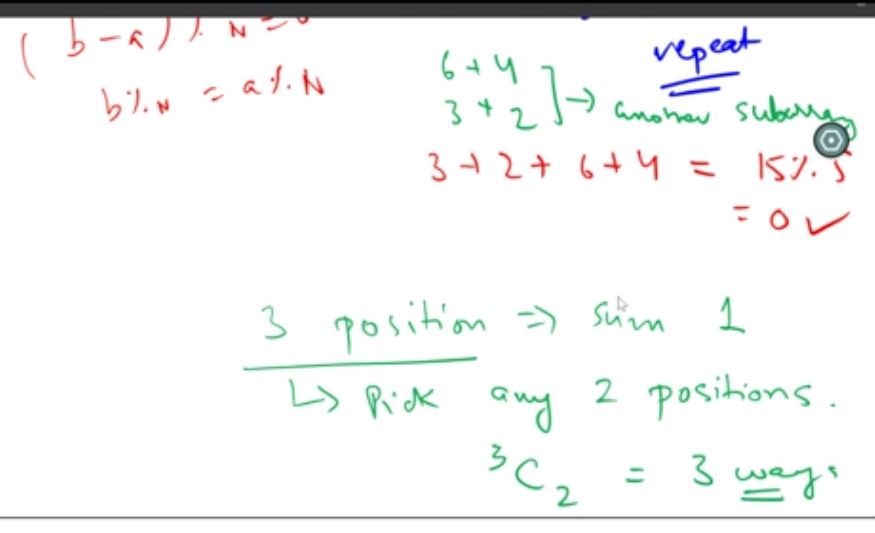 (b-a) % N = 0
b % N = a % N
repeat
6 + 4
3 + 2 ] → another subarray
3 + 2 + 6 + 4 = 15 % 5
= 0 ✓
3 position => sum 1
↳ Pick any 2 positions.
³C₂ = 3 ways